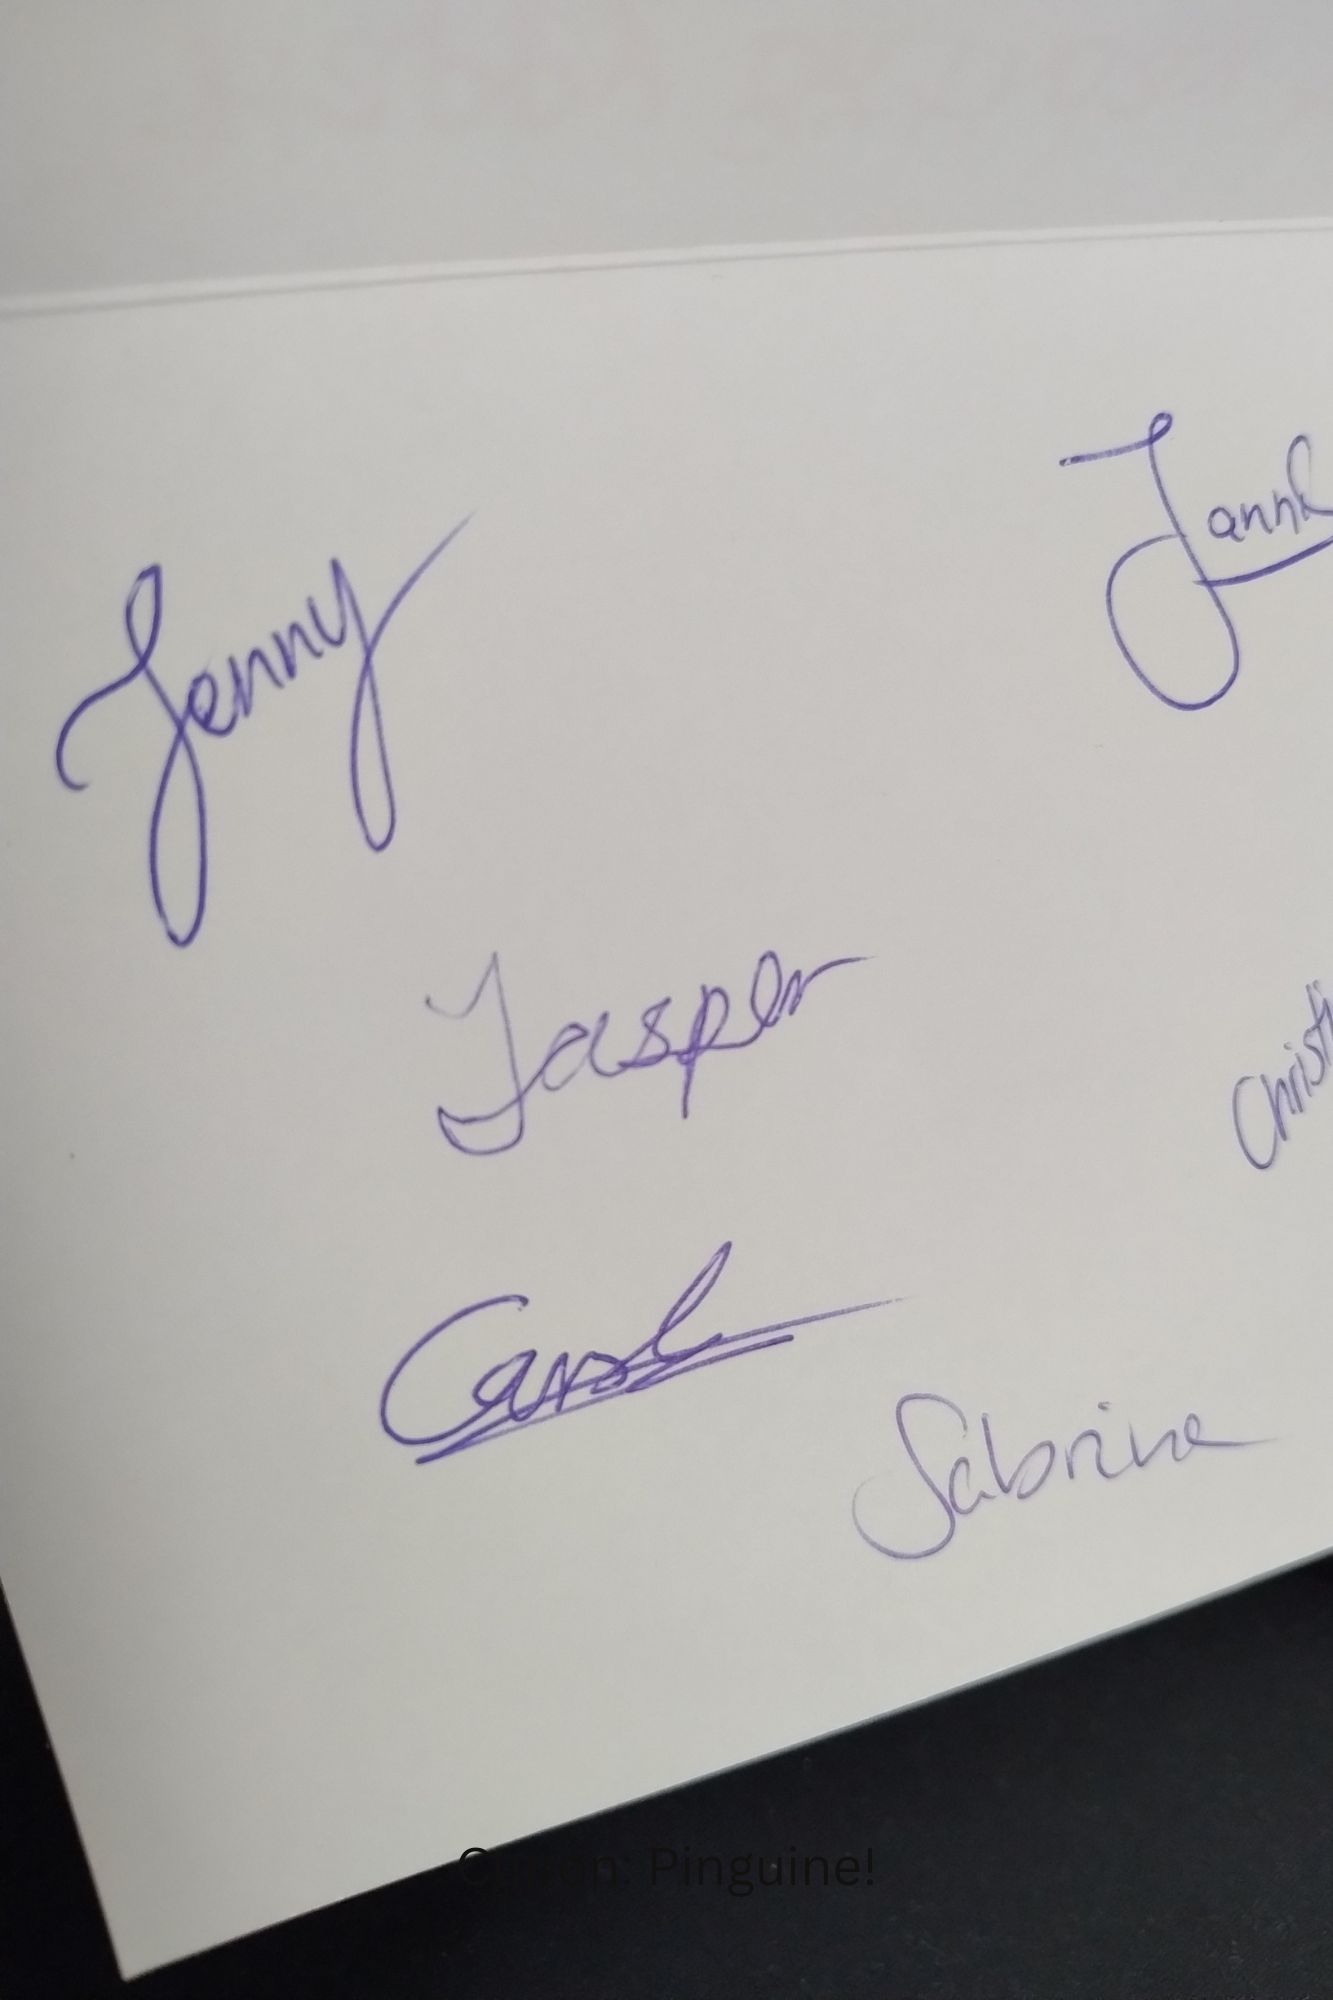 Jenny
Jann
Jasper
Christi
Carol
Sabrina
Pinguine!